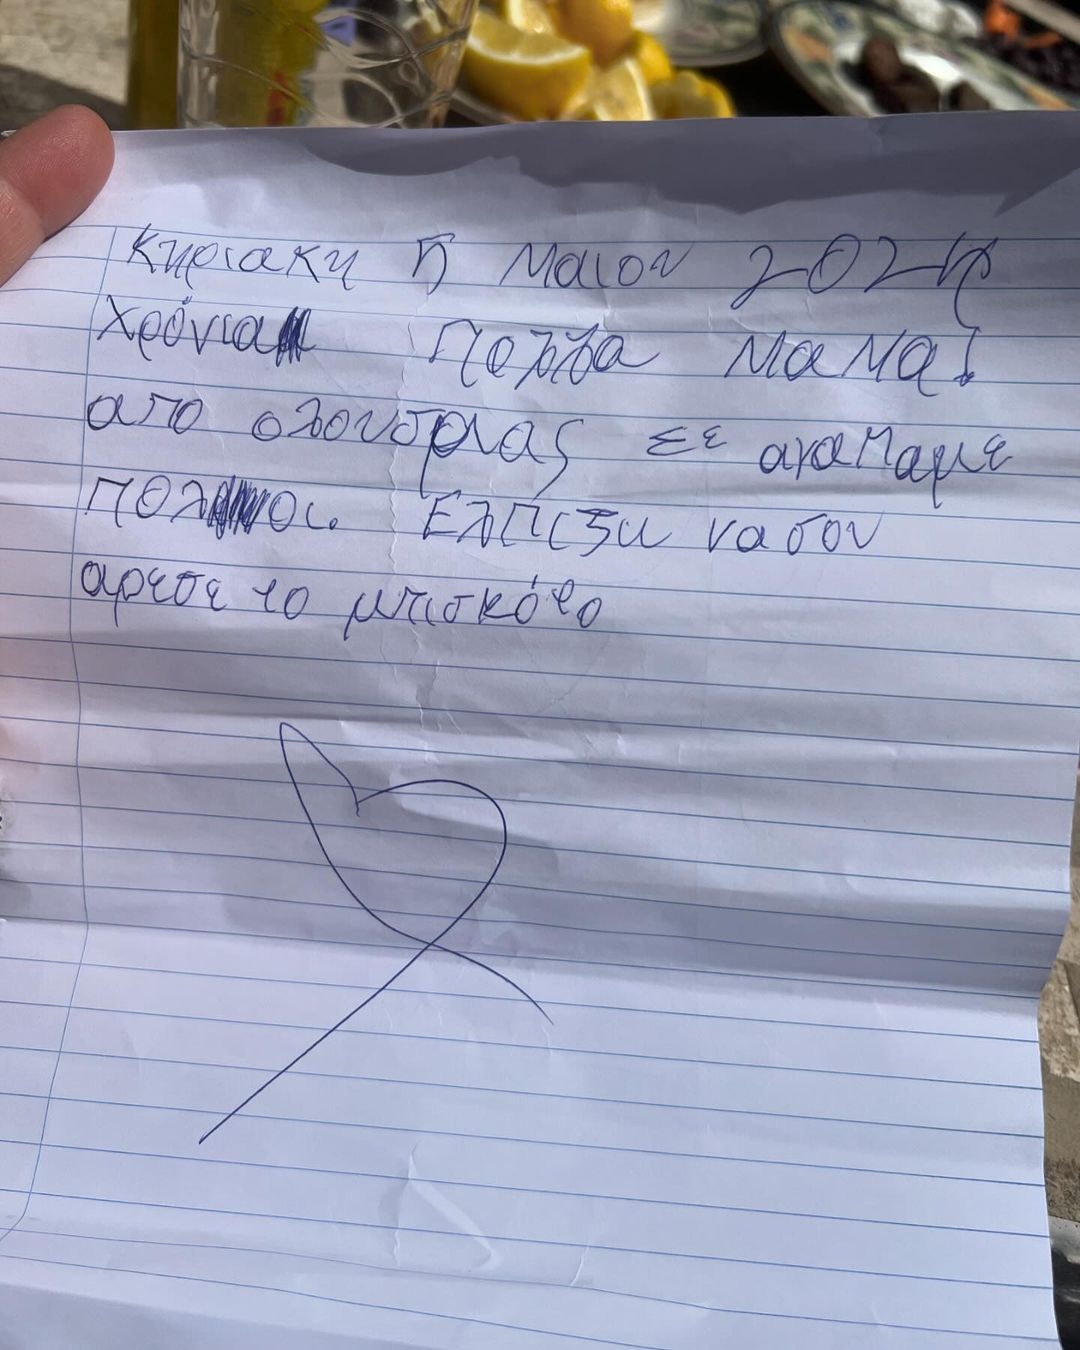 Κηριακη 5 Μαιου 2024
Χρόνια Πολλα ΜαΜα!
απο ολουσμας Σε αγαΠαμε
ΠΟλοι. ΕλΠιζω να σου
αρεσε το μπισκότο